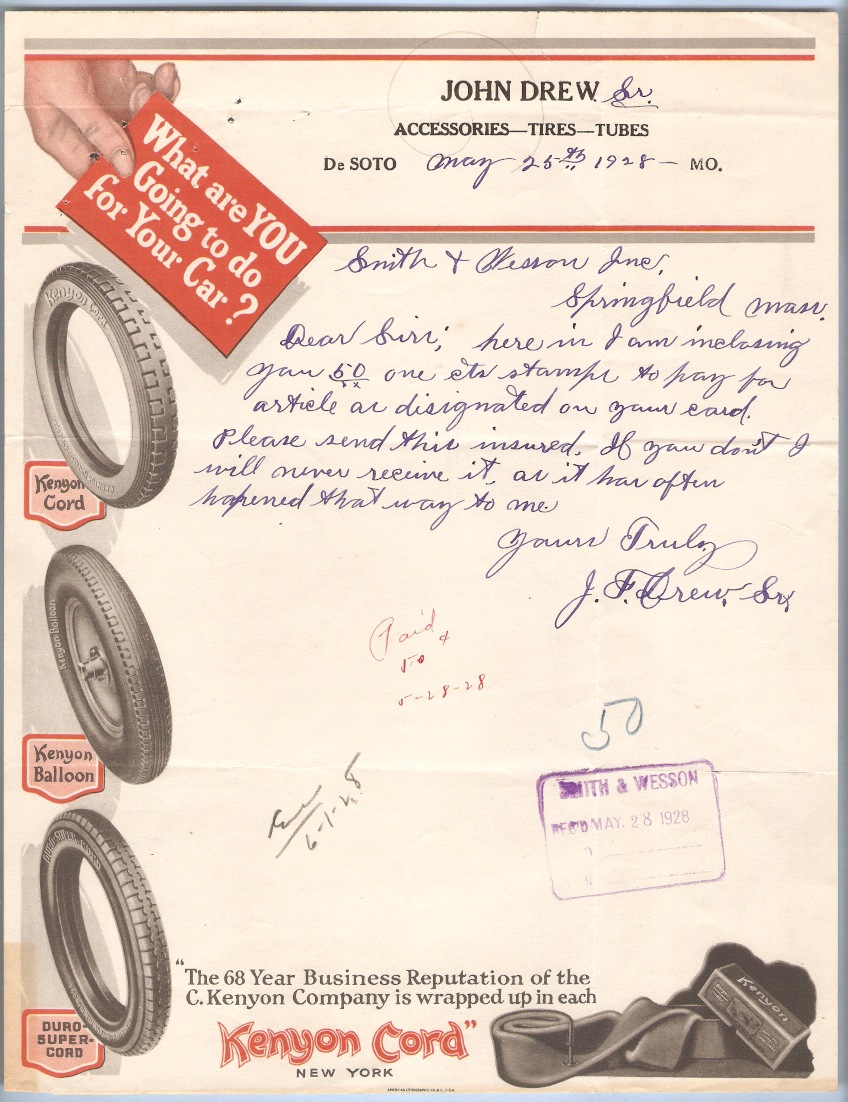 JOHN DREW Sr.
ACCESSORIES—TIRES—TUBES
DE SOTO May 25th 1928 — MO.
What are YOU
Going to do
for Your Car?
Smith & Wesson Inc.
Springfield Mass.
Dear Sirs; here in I am inclosing
you 50 one cts stamps to pay for
article as disignated on your card.
Please send this insured. If you don't I
will never receive it, as it has often
hapened that way to me
Yours Truly
J. F. Drew, Sr.
Kenyon Cord
Kenyon
Cord
Kenyon Balloon
Kenyon
Balloon
DURO SUPER CORD
DURO-
SUPER-
CORD
Paid
50
5-28-28
50
6-1-28
SMITH & WESSON
REC'D MAY. 28 1928
"The 68 Year Business Reputation of the
C. Kenyon Company is wrapped up in each
Kenyon Cord"
NEW YORK
Kenyon